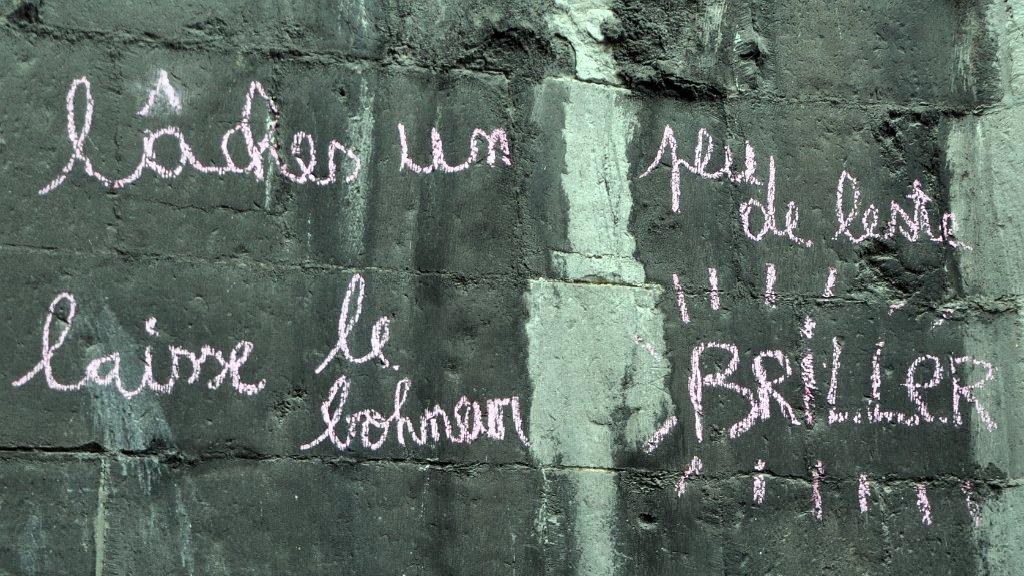 lâches un peu
de leste
laisse le
bohneur BRiLLER